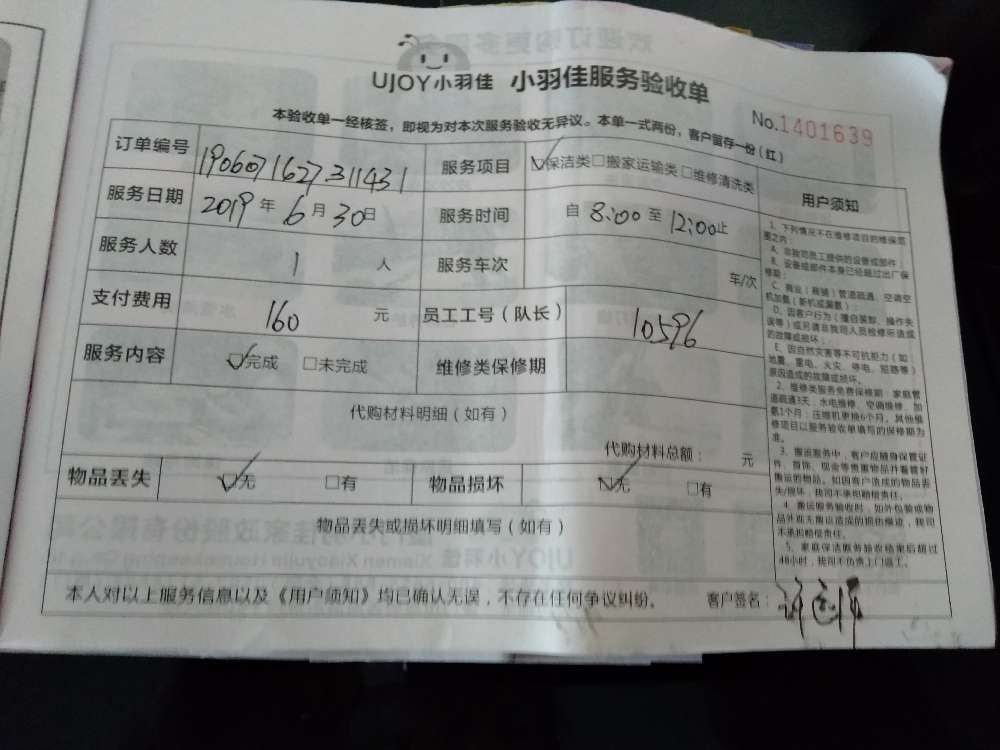 UJOY小羽佳 小羽佳服务验收单
No.1401639
本验收单一经核签，即视为对本次服务验收无异议。本单一式两份，客户留存一份（红）
订单编号 1906071627311431 服务项目 ☑保洁类□搬家运输类□维修清洗类 用户须知
服务日期 2019 年 6 月 30 日 服务时间 自 8:00 至 12:00 止
服务人数 1 人 服务车次 车/次
支付费用 160 元 员工工号（队长） 10596
服务内容 ☑完成 □未完成 维修类保修期
代购材料明细（如有）
代购材料总额： 元
物品丢失 ☑无 □有 物品损坏 ☑无 □有
物品丢失或损坏明细填写（如有）
本人对以上服务信息以及《用户须知》均已确认无误，不存在任何争议纠纷。 客户签名：
1、下列情况不在维修项目的维保范
围之内：
A、非我司员工提供的设备或部件
B、设备或部件本身已经超过出厂保
修期；
C、商业（商铺）管道疏通、空调空
机加氨（新机或漏氨）；
D、因客户行为（擅自装卸、操作失
误等）或另请非我司人员检修所造成
的故障或损坏；
E、因自然灾害等不可抗拒力（如：
地震、雷电、火灾、停电、短路等）
原因造成的故障或损坏。
2、维修类服务免费保修期：家庭管
道疏通3天；水电维修、空调维修、加
氨1个月；压缩机更换6个月。其他维
修项目以服务验收单填写的保修期为
准。
3、搬运服务中，客户应随身保管证
件、首饰、现金等贵重物品并看管好
搬运的物品。如因客户造成的物品丢
失/损坏，我司不承担赔偿责任。
4、搬运服务验收时，如外包装或物
品外观无搬运造成的损伤痕迹，我司
不承担赔偿责任。
5、家庭保洁服务验收结束后超过
48小时，我司不负责上门返工。